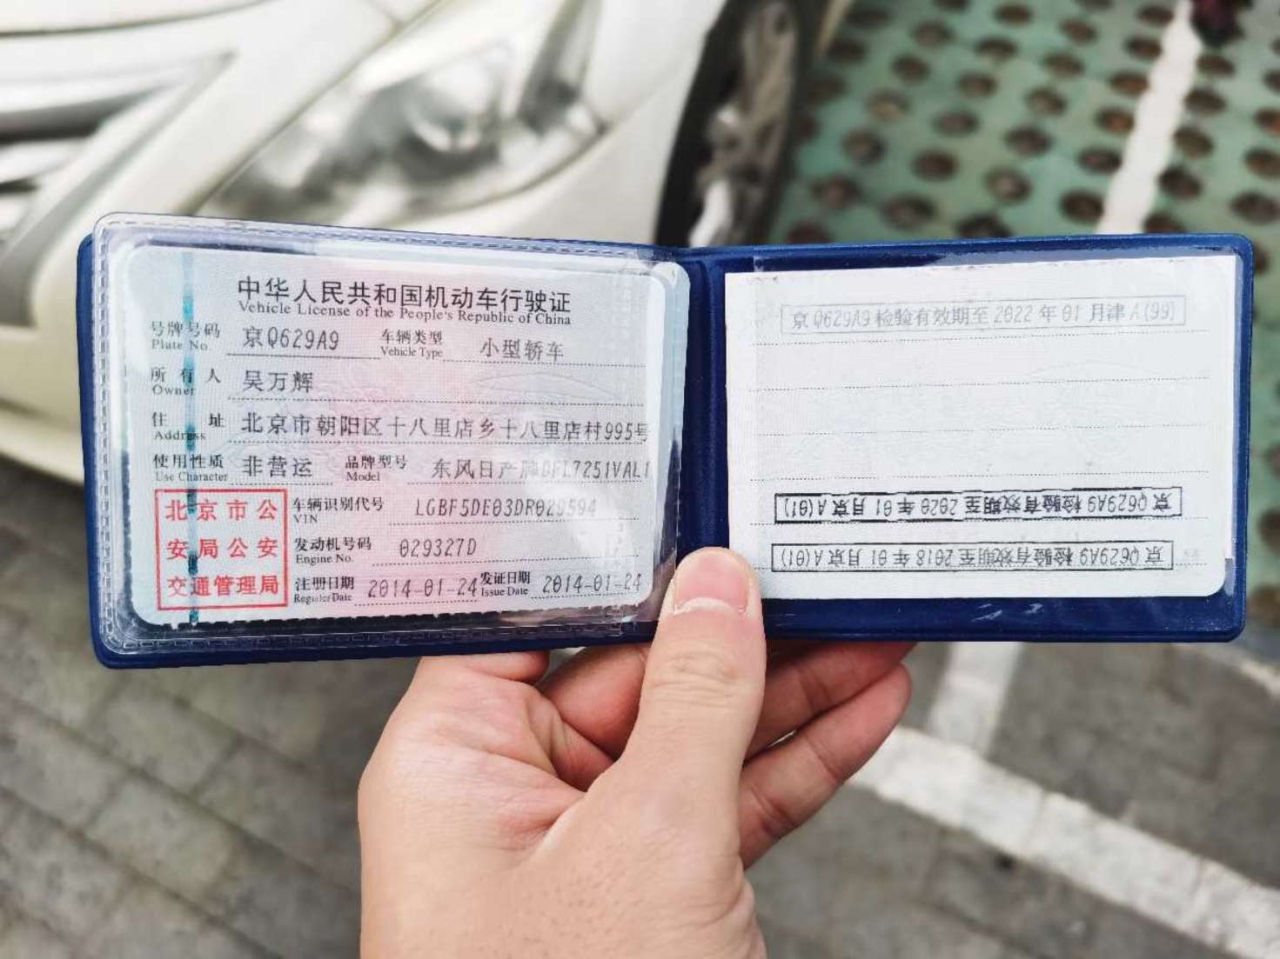 中华人民共和国机动车行驶证
Vehicle License of the People's Republic of China
号牌号码 京Q629A9 车辆类型 小型轿车
Plate No. Vehicle Type
所有人 吴万辉
Owner
住址 北京市朝阳区十八里店乡十八里店村995号
Address
使用性质 非营运 品牌型号 东风日产牌DFL7251VAL1
Use Character Model
北京市公
安局公安
交通管理局
车辆识别代号 LGBF5DE03DR029594
VIN
发动机号码 029327D
Engine No.
注册日期 2014-01-24 发证日期 2014-01-24
Register Date Issue Date
京Q629A9 检验有效期至 2022 年 01 月津 A(99)
京 Q629A9 检验有效期至 2020 年 01 月京 A(01)
京 Q629A9 检验有效期至 2018 年 01 月京 A(01)